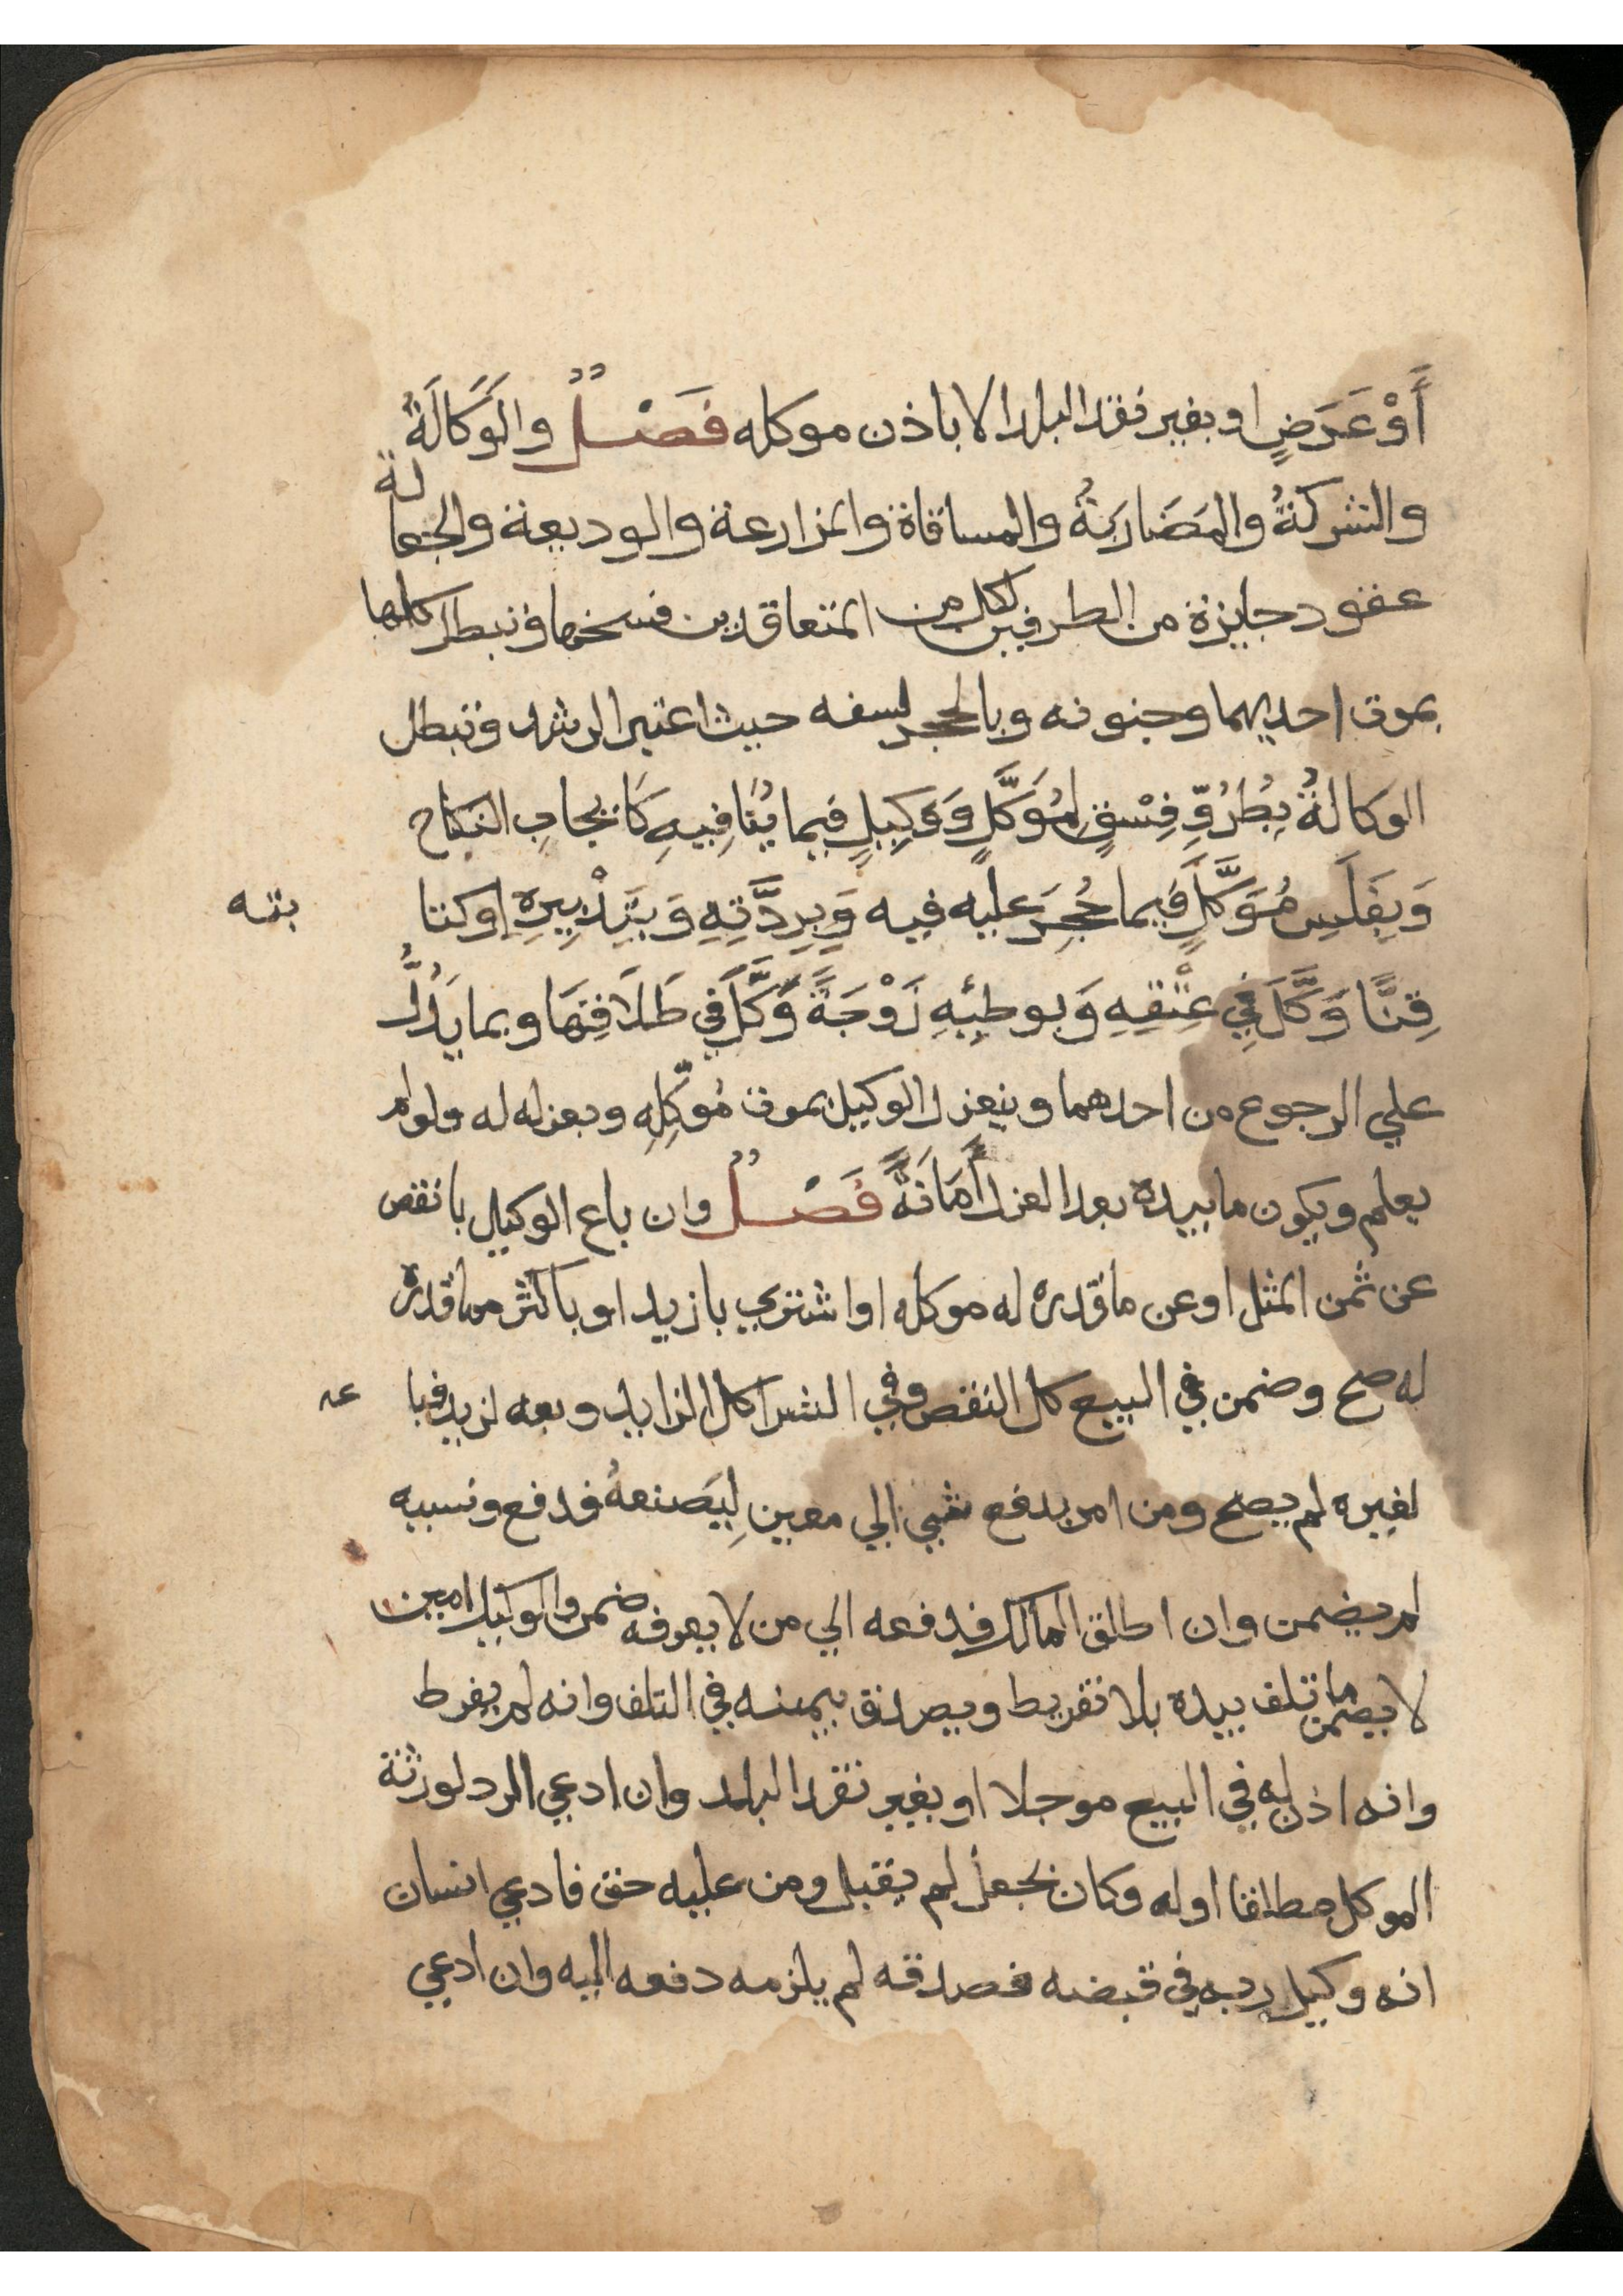 أَوْ عَرَضٍ او بغير نقد البلد الا باذن موكله فَصْلٌ والوَكَالَةُ
والشركةُ والمَضَاربَةُ والمساقاة والمزارعة والوديعة والجعالة
عقود جايزة من الطرفين لكل من المتعاقدين فسخها وتبطل كلها
بموت احديهما وجنونه وبالحجر لسفه حيث اعتبر الرشد وتبطل
الوَكالةُ بِطُرُوِّ فِسْقٍ لِمُوَكَّلٍ وَوَكِيلٍ فيما يُنَافِيهِ كَايجابِ النكاح
وَبِفَلَسِ مُوَكَّلٍ فيما حُجِرَ عليه فيه وَبِرِدَّتِهِ وَبِتَدْبِيرِهِ او كتا
بته
قِنًّا وَكَّلَ فِي عِتْقِهِ وَبوطئِهِ زَوْجَةً وَكَّلَ فِي طَلَاقِهَا وبما يَدُلُّ
علي الرجوع من احدهما وينعزل الوكيل بموت مُوَكِّلِهِ وبعزله له ولو لم
يعلم ويكون ما بيده بعد العزل أَمَانَةً فَصْلٌ وان باع الوكيل بانقص
عن ثمن المثل او عن ما قدره له موكله او اشتري بازيد او باكثر مما قدره
له صح وضمن في البيع كل النقص وفي الشرا كل الزايد وبعه لزيد فبا
عه
لغيره لم يصح ومن امر بدفع شيئ الي معين لِيَصنعهُ فدفع ونسيه
لم يضمن وان اطلق المالك فدفعه الي من لا يعرفه ضمن والوكيل امين
لا يضمن ما تلف بيده بلا تفريط ويصدق بيمينه في التلف وانه لم يفرط
وانه اذن له في البيع موجلا او بغير نقد البلد وان ادعي الرد لورثة
الموكل مطلقا او له وكان بجعل لم يقبل ومن عليه حق فادعي انسان
انه وكيل ربه في قبضه فصدقه لم يلزمه دفعه اليه وان ادعي